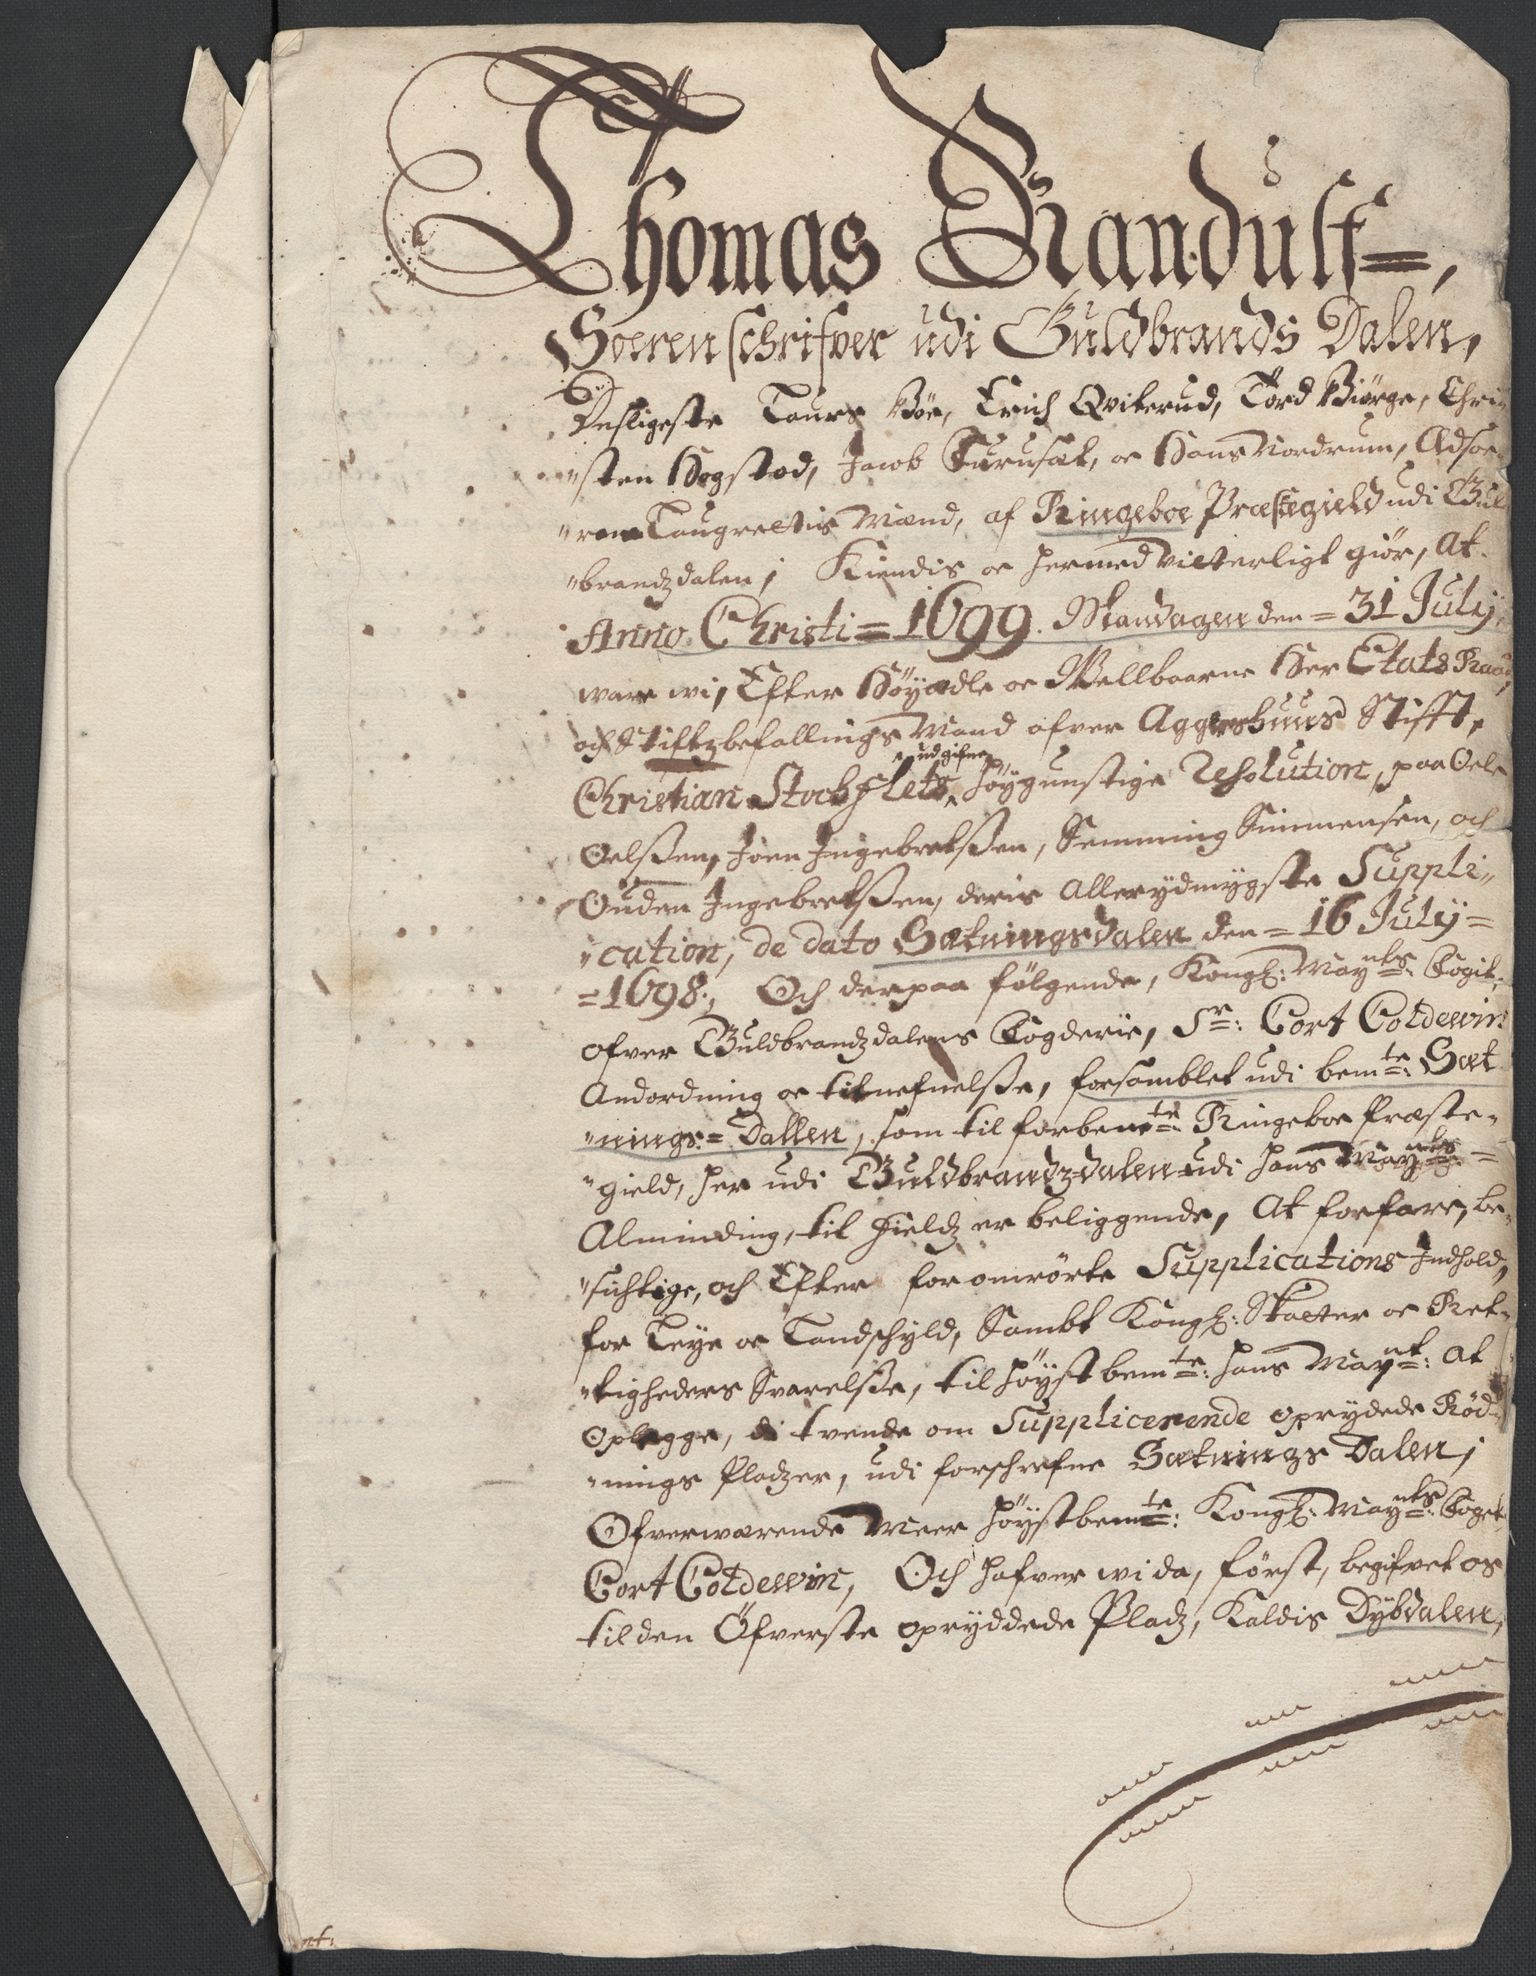 Thomas Randulf=,
Soerenschrifver udi Guldbrands Dalen,
Desligeste Laurs Böe, Erich Qvikerud, Tord Biörge, Chri
"sten Hogstad, Jacob Furusæt, oc Hans Nordrum, Edsoe
"rene Laugrettis Mænd, af Ringeboe Præstegield udi Gul
"brandzdalen; Kiendis oc hermed vitterligt giör, At
Anno Christi = 1699. Mandagen den = 31 July,
ware wi, Efter Höyædle oc Wellbaarne Her Etats Raad,
och Stiftzbefallings Mand ofver Aggershuus Stifft,
Christian Stochflets, udgifne Höygunstige Resolution, paa Oele
Oelssen, Joen Ingebretssen, Semming Simmensen, och
Ouden Ingebretssen, deris Allerydmygste Suppli"
"cation, de dato Sætningsdalen den = 16 July =
= 1698., Och derpaa fölgende, Kongl: May.nts: Fogit,
ofver Guldbrandzdalens Fogderie, Sr: Cort Coldewin
Andordning oc tilnefnelsse, forsamblet udi bem.te: Sæt
"nings = Dallen, som til forbem.te: Ringeboe Præste-
"gield, her udi Guldbrandzdalen udi Hans May.nts: =
Alminding, til Fieldz er beliggende, At forfare, be-
"sichtige, och Efter foromrörte Supplications Indhold,
for Leye oc Landschyld, Sambt Kongl: Skatter oc Ret-
"tigheders Svarelsse, til Höystbem.te: Hans May.nt: at
Oplegge, di tvende om Supplicerende oprydede Röd-
"nings Pladzer, udi forschrefne Sætnings Dalen;
Ofverwærende Meer Höystbem.te: Kongl: May.nts: Foget
Cort Coldewin, Och Hafver wi da, först, begifvet os
til den Öfverste opryddede Pladz, Kaldis Dybdalen,